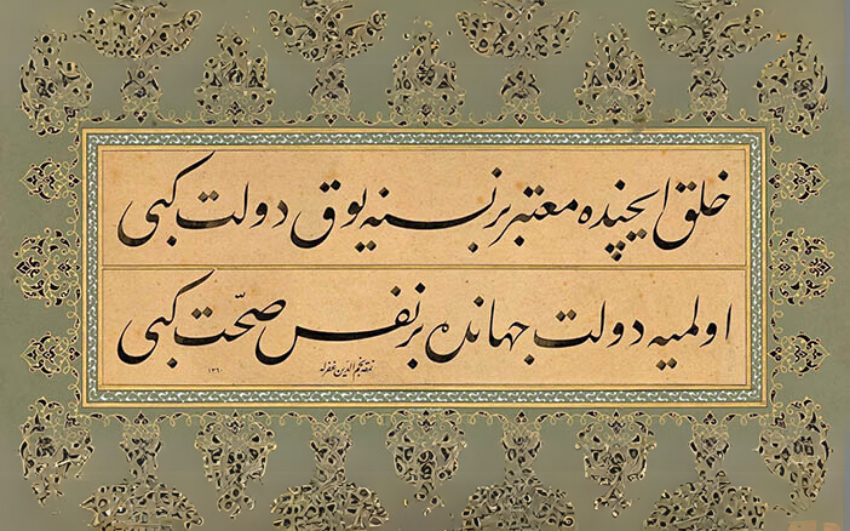 خلق ايچنده معتبر بر نسنه يوق دولت كبی
اولميه دولت جهانده بر نفس صحّت كبی
نمقه نجم الدين غفرله
١٣٦٠